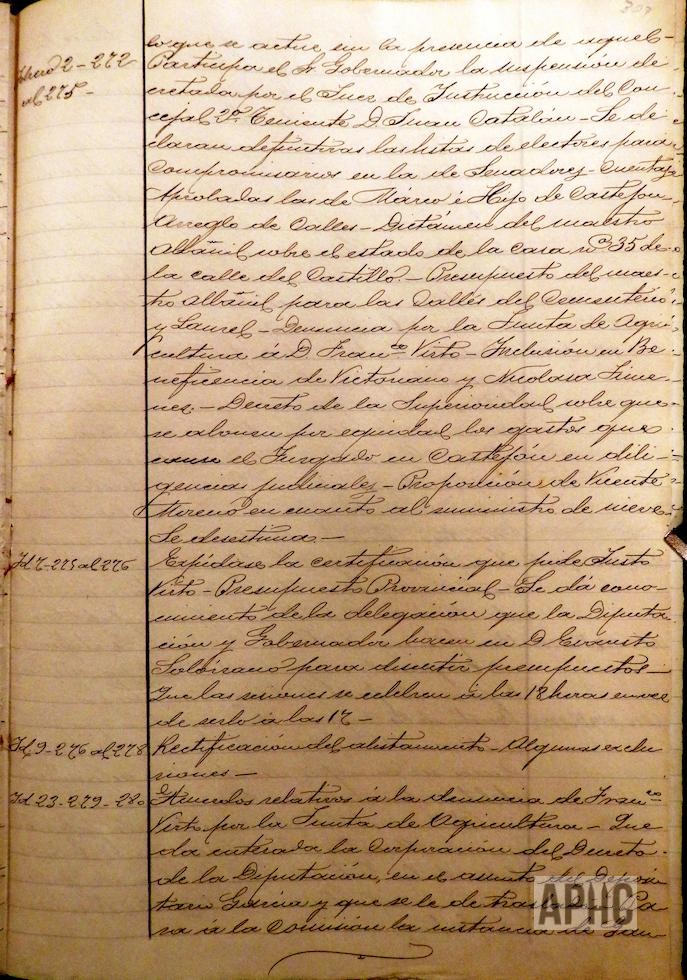 307
lo que se actue sin la presencia de aquel-
Febrero 2-272 Participa el Sr Gobernador la suspensión de
al 275- cretada por el Juez de Instrucción del Con
cejal 2º Teniente D. Juan Catalán - Se de
claran definitivas las listas de electores para
Compromisarios en la de Senadores - Cuentas
Aprobadas las de Márco é Hijo de Castejon
Arreglo de Calles - Dictámen del maestro
Albañil sobre el estado de la casa nº 35 de
la calle del Castillo. - Presupuesto del maes-
tro Albañil para las Calles del Cementerio
y Laurel - Denuncia por la Junta de Agri
cultura á D. Franco Virto - Inclusión en Be
neficencia de Victoriano y Nicolasa Jime-
nez. - Decreto de la Superioridad sobre que
se abonen por equidad los gastos que
cause el Juzgado en Castejón en dili-
gencias judiciales - Proposicion de Vicente
Moreno en cuanto al suministro de nieve
Se desestima. -
Id 7-275 al 276 Expídase la certificación que pide Justo
Virto - Presupuesto Provincial - Se dá cono-
cimiento de la delegación que la Diputa
ción y Gobernador hacen en D. Evaristo
Solorzano para discutir presupuestos -
Que las sesiones se celebren á las 18 horas en vez
de serlo á las 17 -
Id 9-276 al 278 Rectificación del alistamiento - Algunas exclu
siones -
Id 23-279-280 Acuerdos relativos á la denuncia de Franco
Virto por la Junta de Agricultura - Que
da enterada la Corporación del Decreto
de la Diputación, en el asunto del Deposi
tario García y que se le dé traslado - Pa
sa á la Comisión la instancia de
APHC